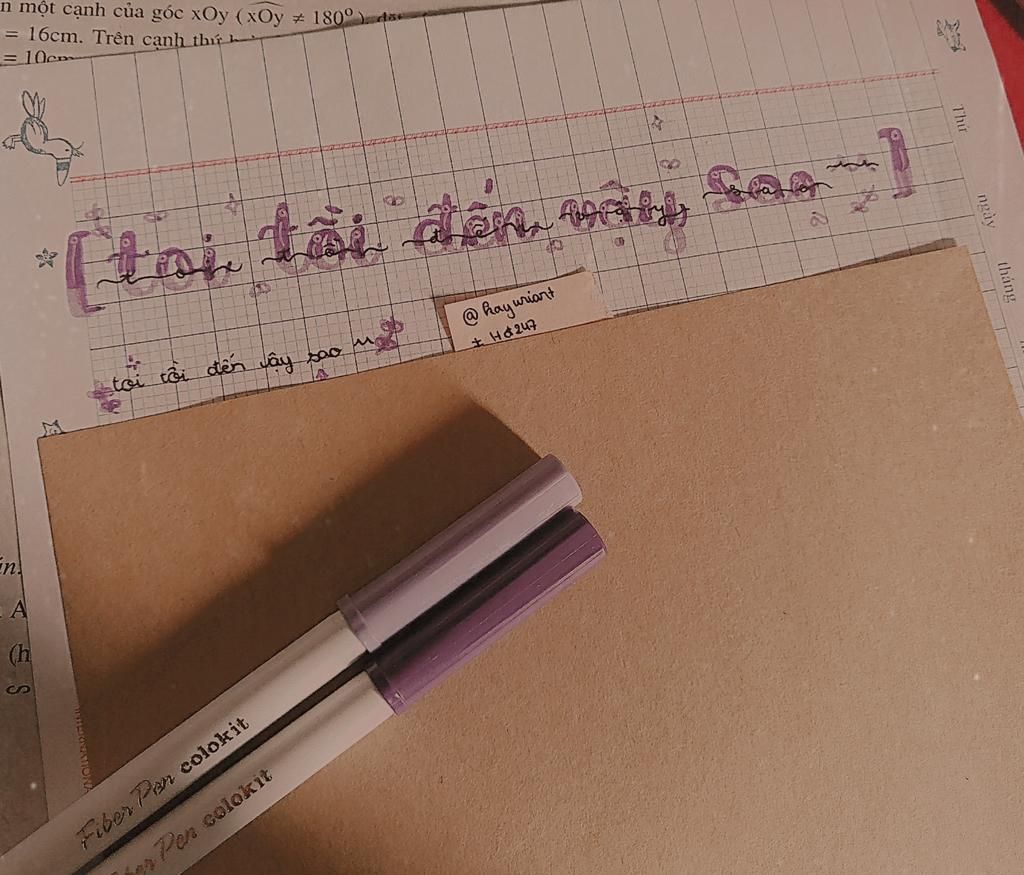 n một cạnh của góc xOy (xOy ≠ 180°), đặt
= 16cm. Trên cạnh thứ
= 10cm
Thứ
ngày
tháng
[ tồi tồi đến vậy sao ]
@haywriant
± Hđ247
tồi tồi đến vậy sao
ín.
A
(h
S
Fiber Pen colokit
Fiber Pen colokit